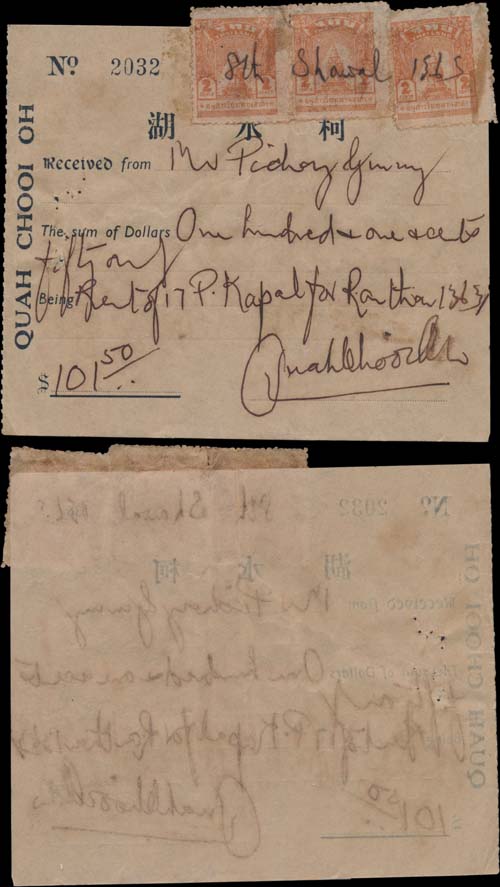 Nº 2032
8th Shawal 1363
2 2 2 2 2
湖 水 柯
QUAH CHOOI OH
Received from Mr Pichay Gunny
The sum of Dollars One hundred & one & cents
fifty only
Being Rent of 17 P. Kapal for Ramthan 1363
$ 101.50
Quah Chooi Oh